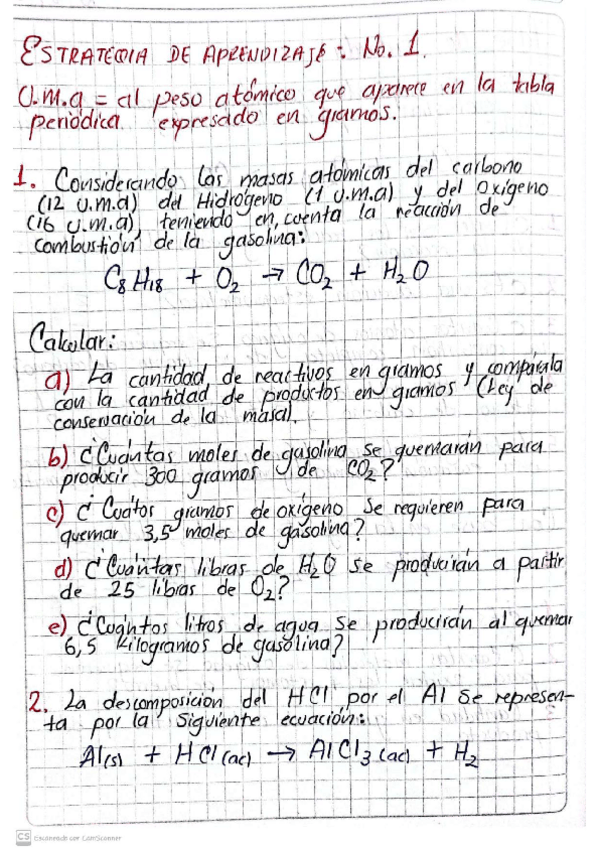 ESTRATEGIA DE APRENDIZAJE: No. 1.
U.m.a = al peso atómico que aparece en la tabla
periódica expresado en gramos.
1. Considerando las masas atómicas del carbono
(12 U.m.a) del Hidrógeno (1 U.m.a) y del Oxígeno
(16 U.m.a), teniendo en cuenta la reacción de
combustión de la gasolina:
C₈H₁₈ + O₂ → CO₂ + H₂O
Calcular:
a) La cantidad de reactivos en gramos y compárala
con la cantidad de productos en gramos (Ley de
conservación de la masa).
b) ¿Cuántas moles de gasolina se quemarán para
producir 300 gramos de CO₂?
c) ¿Cuátos gramos de oxígeno se requieren para
quemar 3,5 moles de gasolina?
d) ¿Cuántas libras de H₂O se producirán a partir
de 25 libras de O₂?
e) ¿Cuántos litros de agua se producirán al quemar
6,5 Kilogramos de gasolina?
2. La descomposición del HCl por el Al se represen-
ta por la siguiente ecuación:
Al(s) + HCl(ac) → AlCl₃(ac) + H₂
CS Escaneado con CamScanner